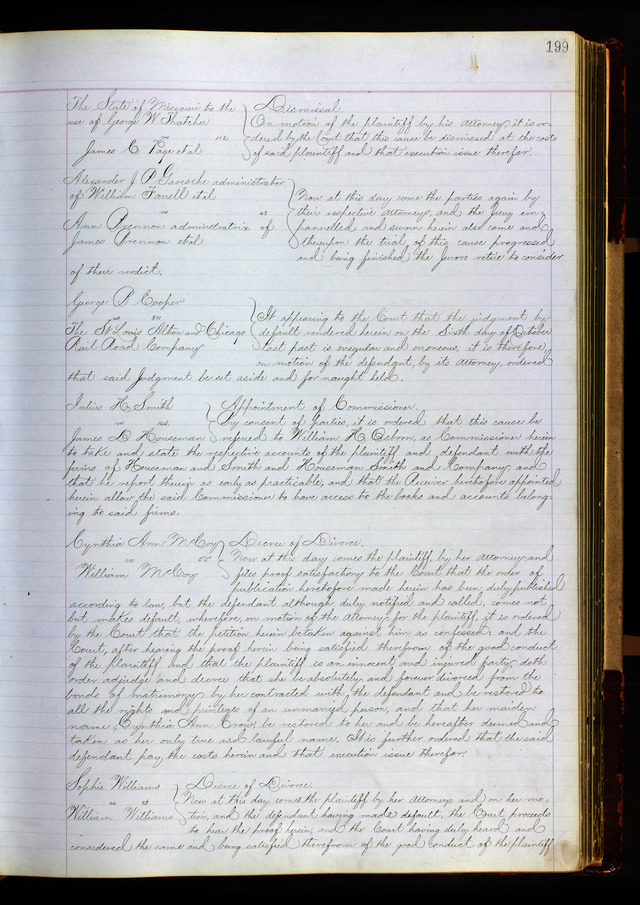 199
The State of Missouri to the } Dismissal.
use of George W Thatcher } On motion of the plaintiff by his Attorney, it is or-
vs } dered by the Court that this cause be dismissed at the costs
James C Page et al } of said plaintiff and that execution issue therefor.
Alexander J P Garesche administrator
of William Farell et al } Now at this day come the parties again by
vs } their respective attorneys, and the Jury em-
Ann Brennon administratrix of } pannelled and sworn herein also come and
James Brennon et al } thereupon the trial of this cause progressed
and being finished the Jurors retire to consider
of their verdict.
George P Cooper
vs } It appearing to the Court that the judgment by
The St Louis Alton and Chicago } default rendered herein on the Sixth day of October
Rail Road Company } last past is irregular and erroneous, it is therefore,
on motion of the defendant, by its Attorney, ordered
that said Judgment be set aside and for naught held.
Julius H. Smith } Appointment of Commissioner.
vs } By consent of parties, it is ordered that this cause be
James D Houseman } referred to William H. Osborn, as Commissioner herein
to take and state the respective accounts of the plaintiff and defendant with the
firms of Houseman and Smith and Houseman Smith and Company, and
that he report therein as early as practicable, and that the Receiver heretofore appointed
herein allow the said Commissioner to have access to the books and accounts belong-
ing to said firms.
Cynthia Ann McCoy } Decree of Divorce.
vs } Now at this day comes the plaintiff by her Attorney, and
William McCoy } files proof satisfactory to the Court that the order of
publication heretofore made herein has been duly published
according to law, but the defendant although duly notified and called, comes not
but makes default, wherefore, on motion of the Attorney for the plaintiff, it is ordered
by the Court that the petition herein be taken against him as confessed: and the
Court, after hearing the proof herein being satisfied therefrom of the good conduct
of the plaintiff and that the plaintiff is an innocent and injured party, doth
order adjudge and decree that she be absolutely and forever divorced from the
bonds of matrimony by her contracted with the defendant and be restored to
all the rights and privileges of an unmarried person, and that her maiden
name, Cynthia Ann Crow, be restored to her and be hereafter deemed and
taken as her only true and lawful name. It is further ordered that the said
defendant pay the costs herein and that execution issue therefor.
Sophie Williams } Decree of Divorce.
vs } Now at this day comes the plaintiff by her Attorney, and on her mo-
William Williams } tion, and the defendant having made default, the Court proceeds
to hear the proof herein, and the Court having duly heard and
considered the same and being satisfied therefrom of the good conduct of the plaintiff